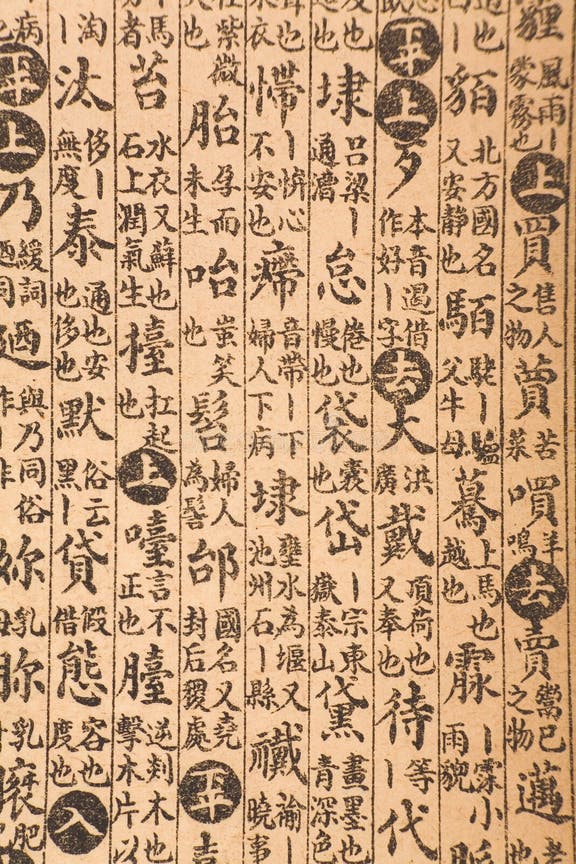 霾 風雨｜蒙霧也 上 買 售人之物 賣 苦菜 嘪 羊鳴 去 賣 鬻己之物 邁
也 貊 北方國名又安静也 駱 駝｜驢父牛母 驀 上馬也越也 霢 ｜霂小雨貌
平 上 歹 本音遏借作好｜字 去 大 洪廣 戴 頂荷也又奉也 待 ｜等 代
也 埭 吕梁｜通濇 怠 倦也慢也 袋 囊也 岱 ｜宗東嶽泰山 黛 畫墨也青深色
也 㦅 ｜悷心不安也 㿃 音帶｜下婦人下病 埭 壅水為堰又池州石｜縣 襶 曉事
紫薇也 胎 孕而未生 咍 蚩笑也 髫 婦人為髻 邰 國名又堯封后稷處 平
｜馬者 苔 水衣又石上潤氣生又蘚也 擡 扛起也 上 嚔 言不正也 臺 逆剡木也擊木片以
淘｜ 汰 侈｜無度 泰 通也安也侈也 默 俗云黑｜ 貸 假借 態 容也度也 入
病 平 上 乃 緩詞 迺 與乃同俗作 妳 乳母 乳 肥